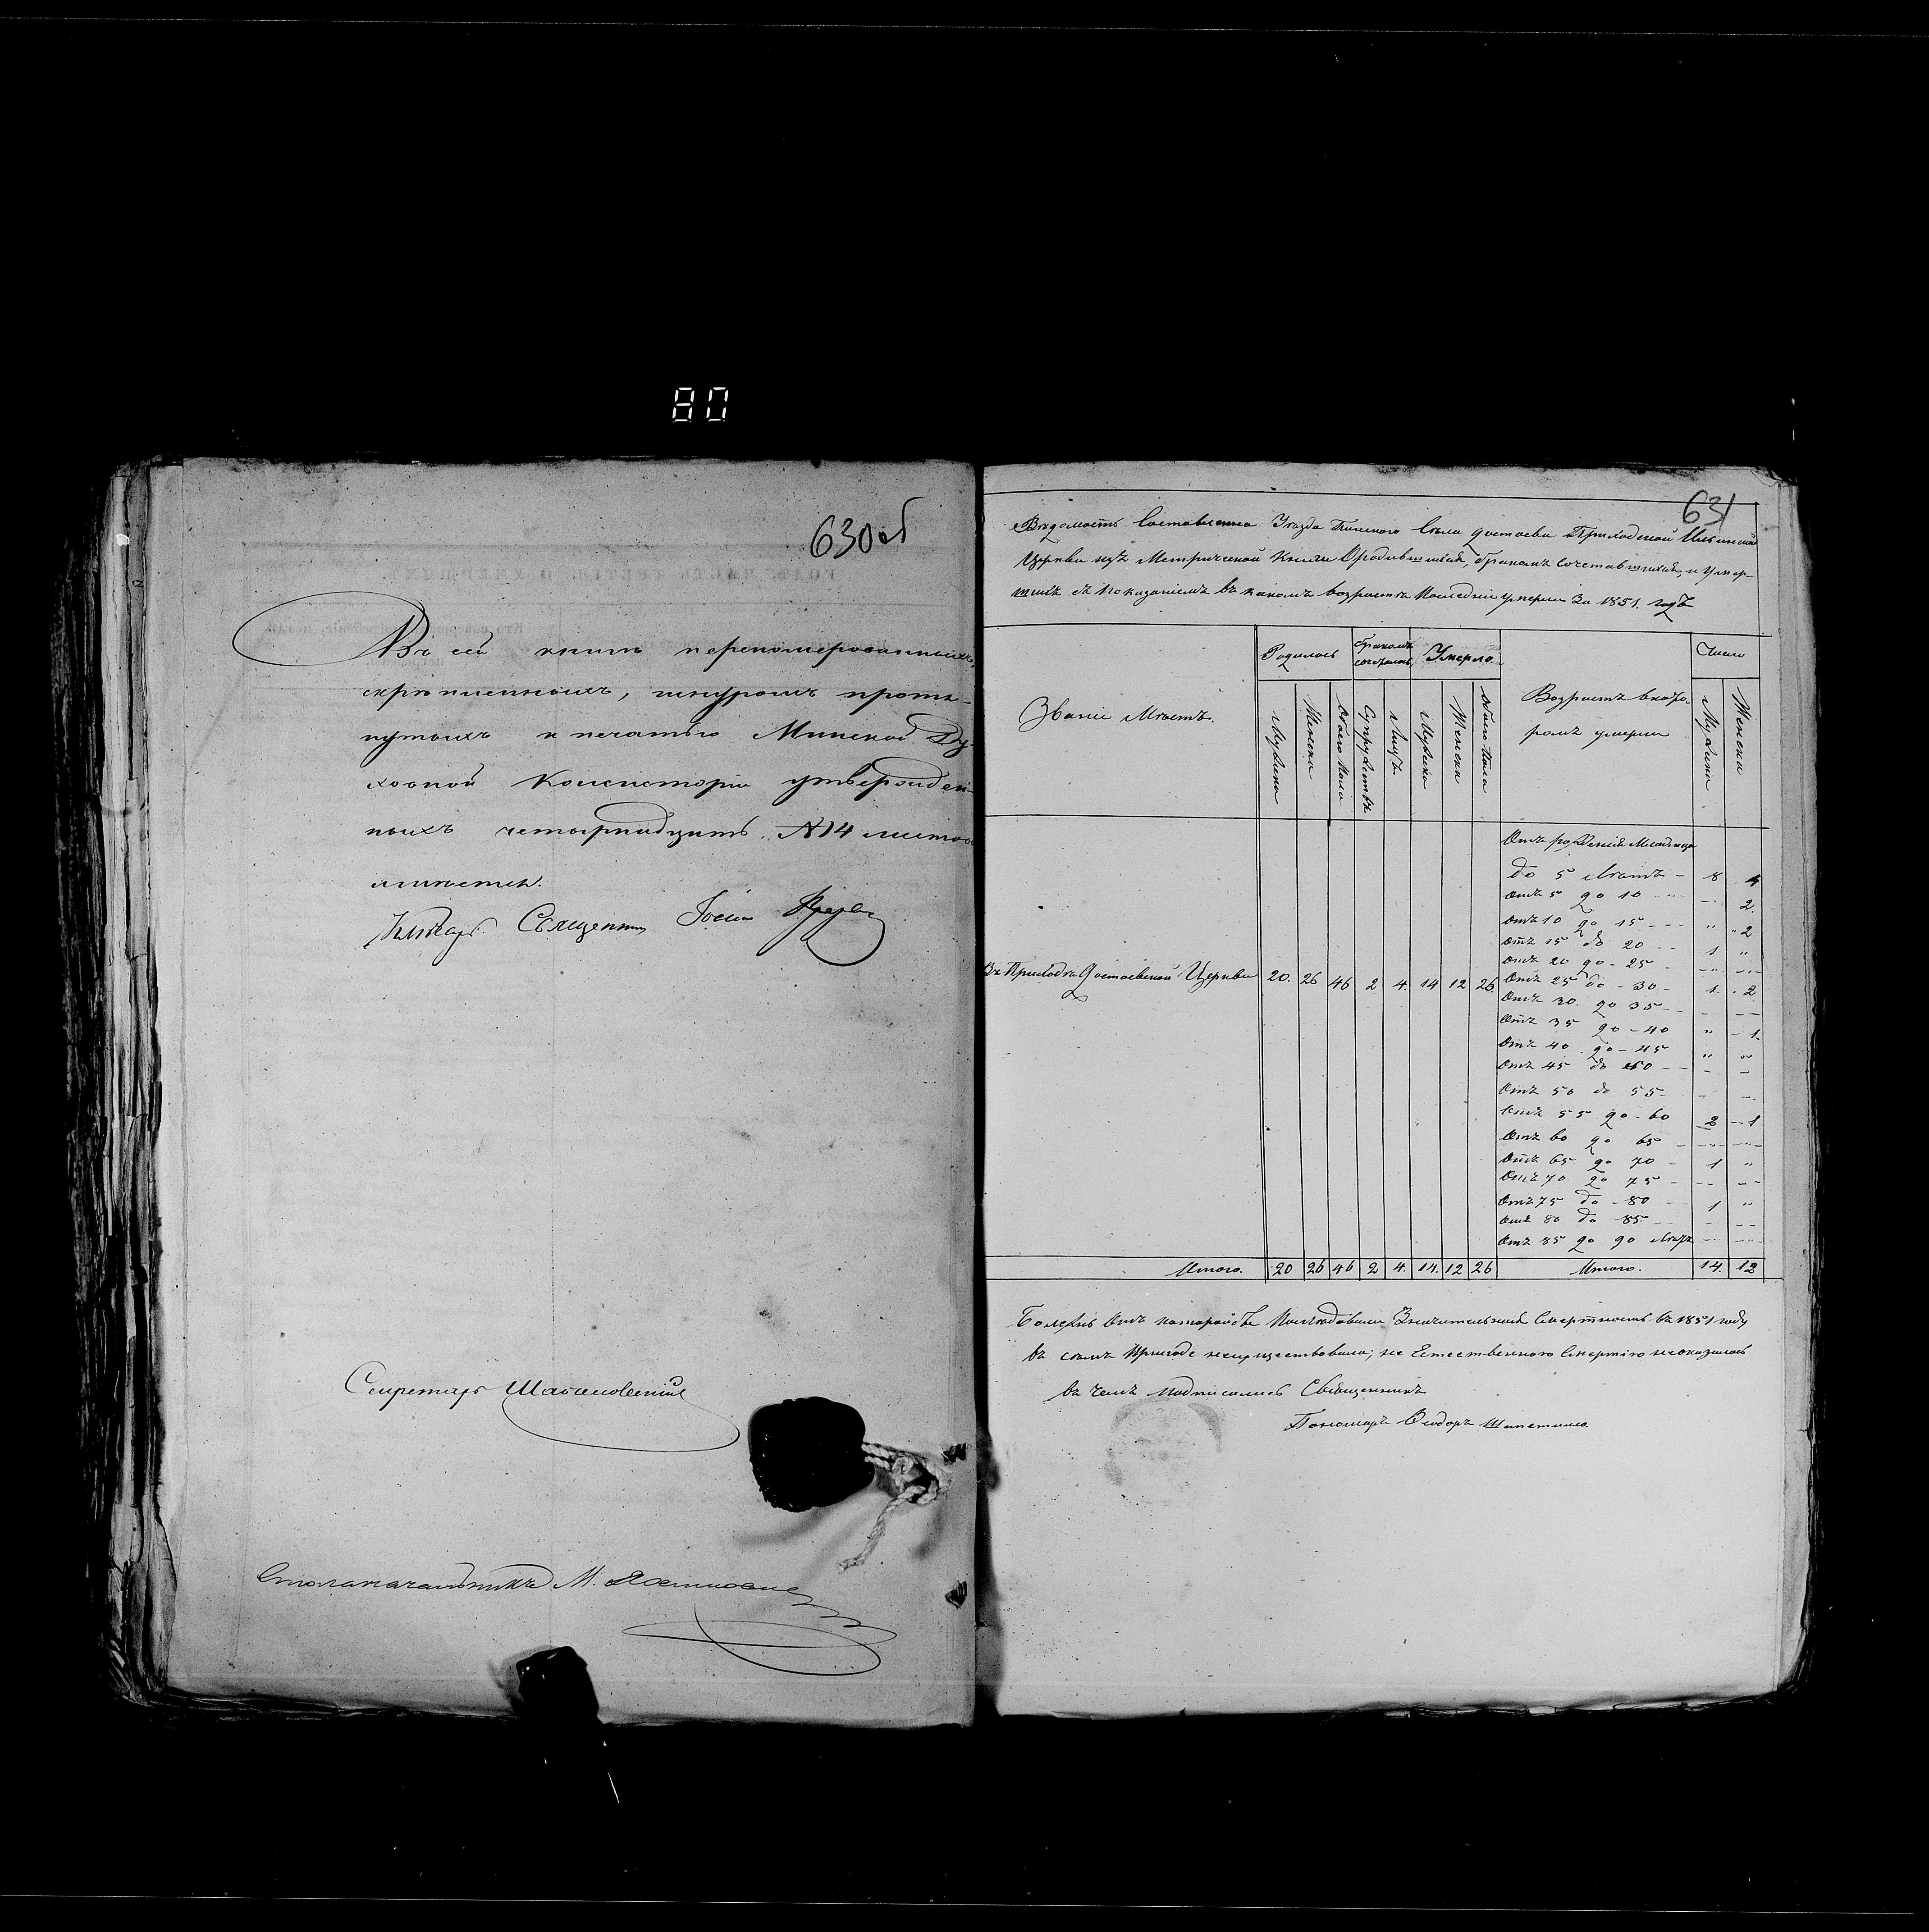 80
630 об
Въ сей книгѣ перенумерованныхъ,
скрѣпленныхъ, шнуромъ протя-
нутыхъ и печатью Минской Ду-
ховной Консисторіи утвержден-
ныхъ четырнадцать №14 листов
имѣется.
Ключарь Священникъ
Секретарь
Столоначальникъ М.
631
Вѣдомость Составлена Уѣзда Пинского Села Достоева Приходской Ильинской
Церкви изъ Метрической Книги О родившихся, бракомъ сочетавшихся, и умер-
шихъ съ показаніемъ въ какомъ возрастѣ последніи умерли За 1851. годъ
Званіе Мѣстъ.
Родилось
Бракомъ сочеталось
Умерло.
Возрастъ в кото-
ромъ умерли
Число
Мужска
Женска
Обоего пола
Супружествъ
Лицъ
Мужска
Женска
Обоего пола
Мужска
Женска
Отъ рожденія Младенца
до 5 лѣтъ - 8 4
Отъ 5 до 10 - 2
Отъ 10 до 15 - - - " 2
Отъ 15 до 20 - - 1 "
Отъ 20 до - 25 -
Въ Приходѣ Достоевской Церкви 20. 26 46 2 4. 14 12 26.
Отъ 25 до - 30 - 1. 2
Отъ 30. до 35 -
Отъ 35 до - 40 " 1
Отъ 40 до - 45 " "
Отъ 45 до 50 - - - -
Отъ 50 до 55 -
Отъ 55 до - 60 2 1
Отъ 60 до 65 -
Отъ 65 до 70 - 1 "
Отъ 70 до 75 -
Отъ 75 до - 80 - 1 "
Отъ 80 до 85 - -
Отъ 85 до 90 лѣтъ
Итого. 20 26 46 2 4. 14. 12 26 Итого. 14. 12
Болезнь Отъ которой бы Последовала Значительная Смертность въ 1851 году
въ семъ Приходе не существовала; но Естественного Смертію
въ чемъ подписались Священникъ
Пономаръ Ѳеодоръ